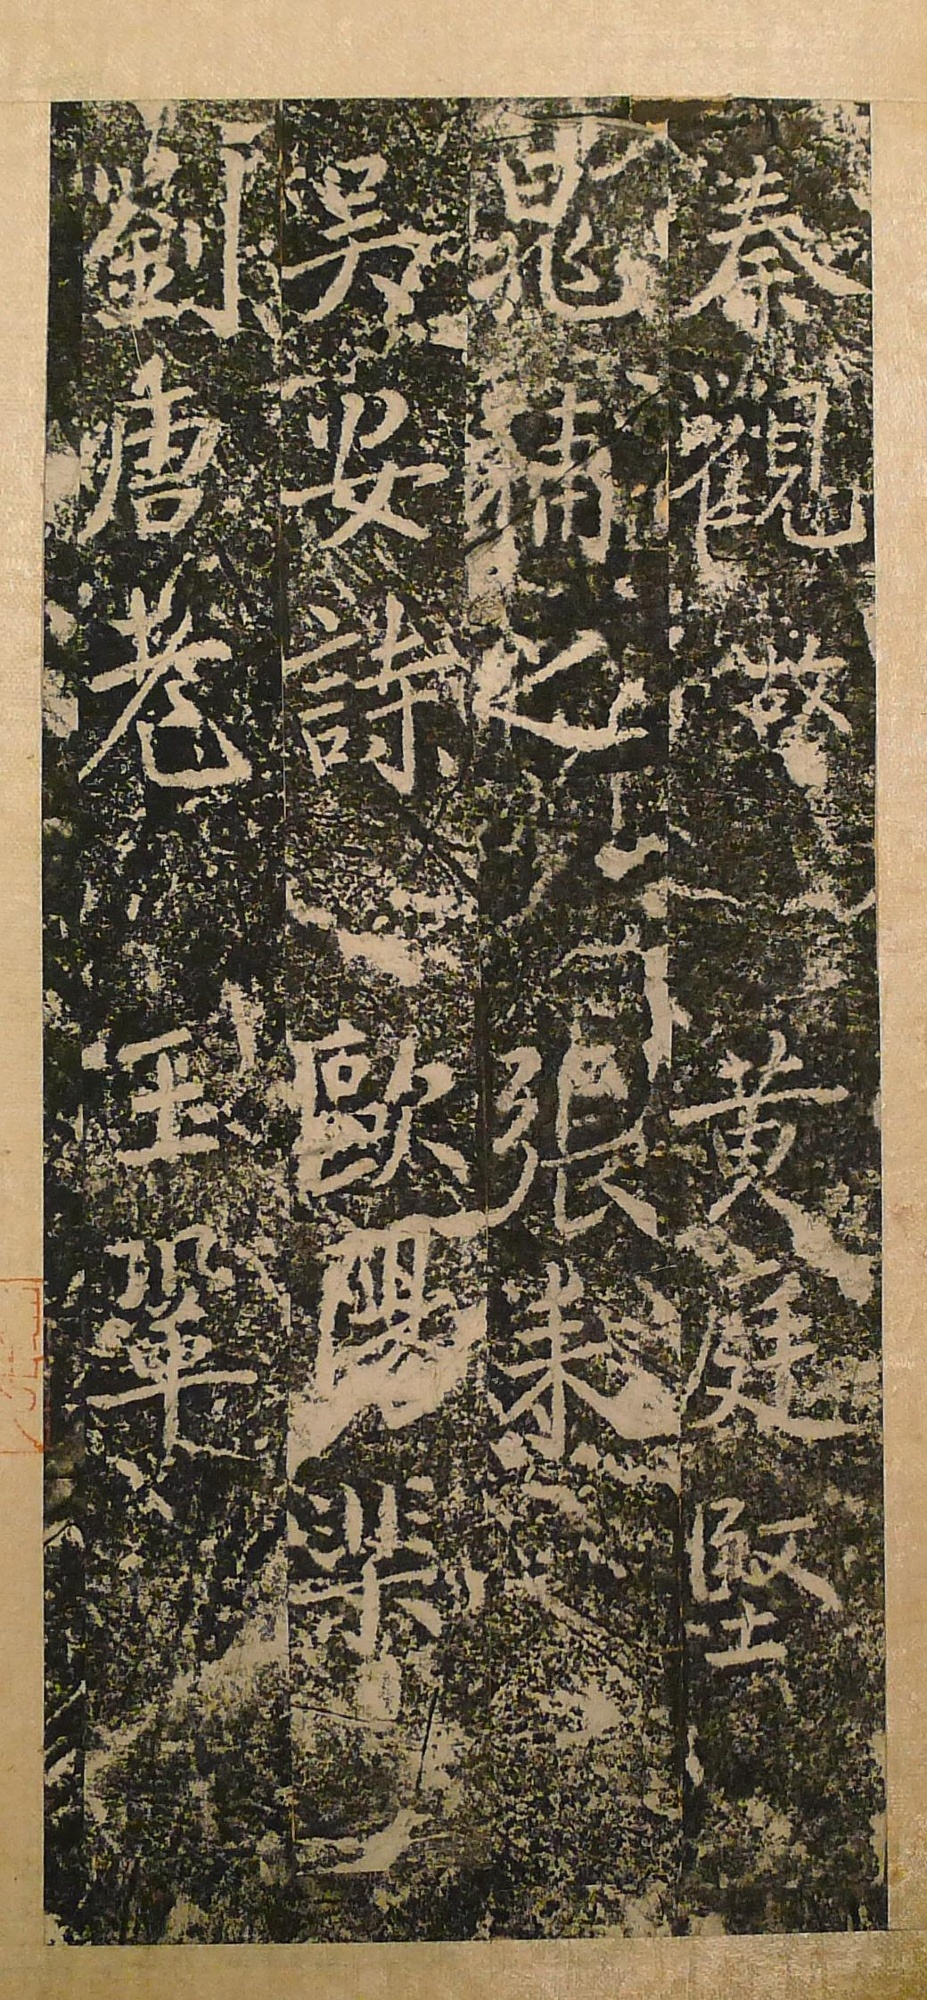 秦觀故 黃庭堅
晁補之 張耒
吳安詩 歐陽棐
劉唐老 王鞏